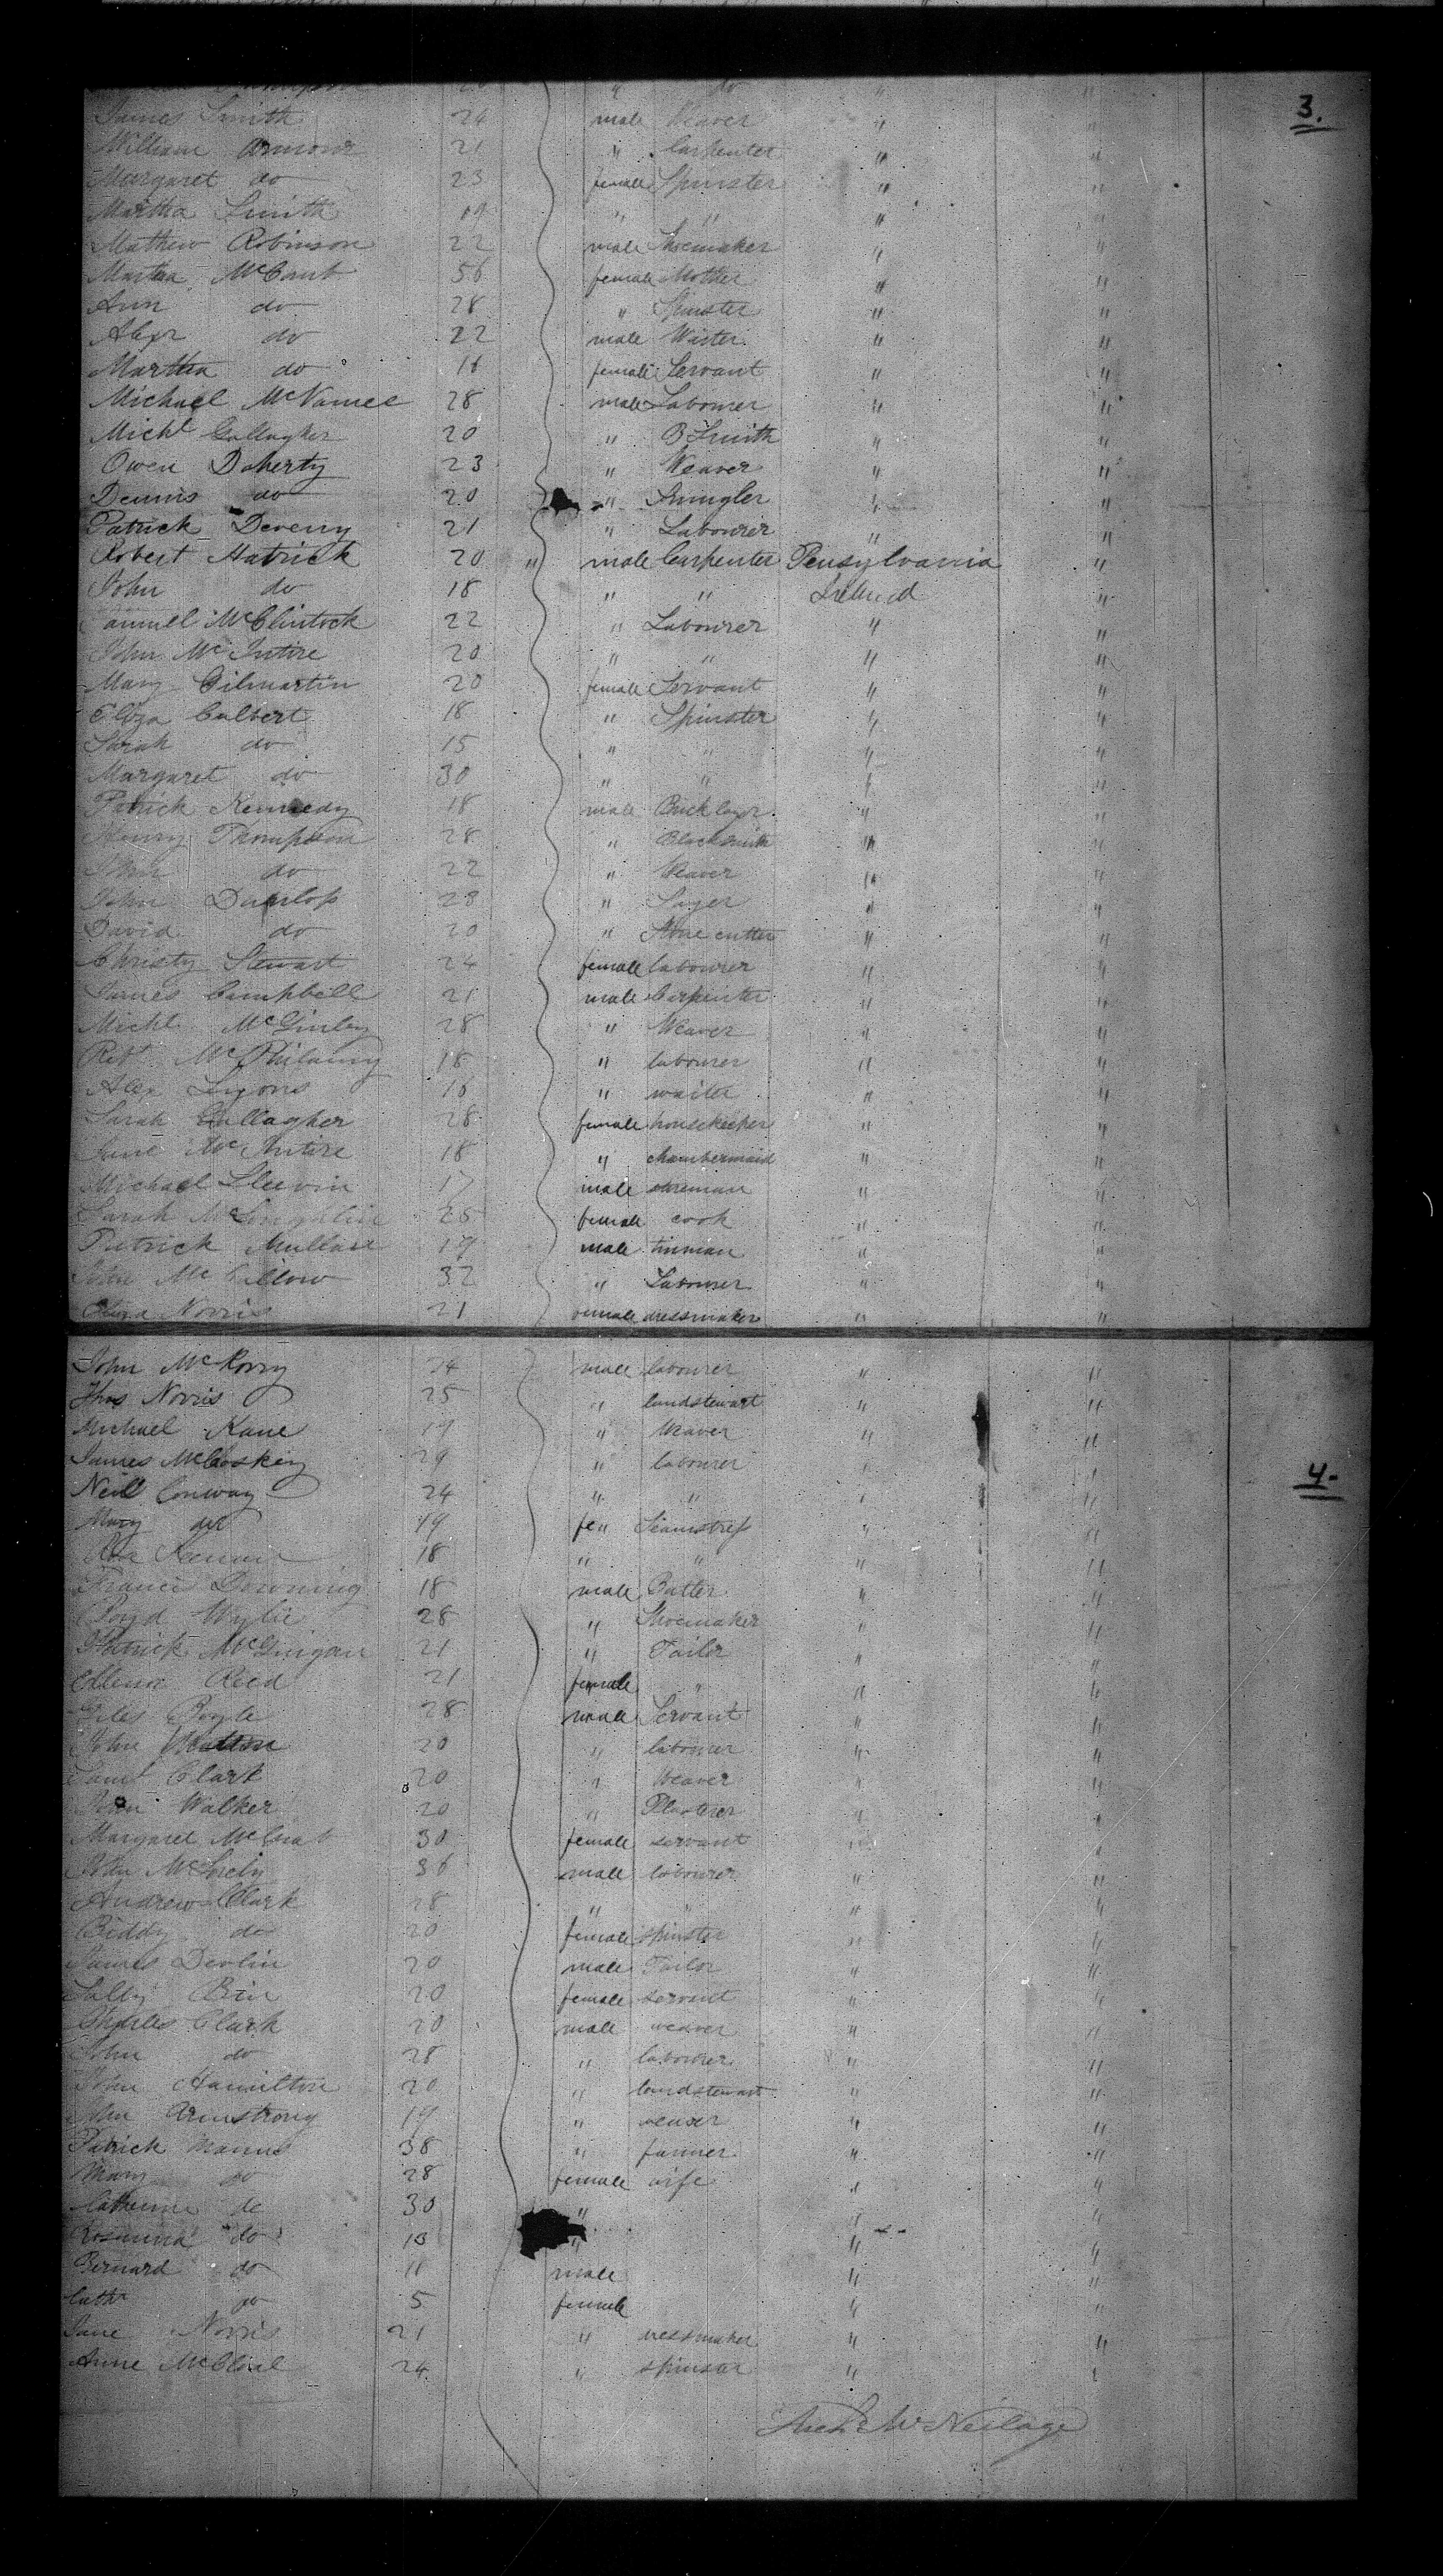 3.
James Smith 24 male Weaver " "
William Armour 21 " Carpenter " "
Margaret do 23 female Spinster " "
Martha Smith 19 " " " "
Mathew Robinson 22 male Shoemaker " "
Martha 56 female Mother " "
Ann do 28 " Spinster " "
Alexr do 22 male Waiter " "
Martha do female Servant " "
Michael McNamee 28 male Labourer " "
Michl Gallagher 20 " B Smith " "
Owen Doherty 23 " Weaver " "
Dennis do 20 " " "
Patrick Deveny 21 " Labourer " "
Robert Hatrick 20 " male Carpenter Pensylvania "
John do 18 " " Ireland "
Samuel McClintock 22 " Labourer " "
John McIntire 20 " " " "
Mary Gilmartin 20 female Servant " "
Eliza Culbert 18 " Spinster " "
Sarah do 15 " " " "
Margaret do 30 " " " "
Patrick Kennedy 18 male Bricklayr " "
Henry Thompson 28 " Blacksmith " "
John do 22 " Weaver " "
John Dunlop 28 " " "
David do 20 " Stone cutter " "
Christy Stewart 24 female labourer " "
James Campbell 21 male Carpenter " "
Michl McGinley 28 " Weaver " "
Robt 18 " labourer " "
Alex Lyons " waiter " "
Sarah Gallagher 28 female housekeeper " "
Jane McIntire 18 " chambermaid " "
Michael Sleevin 17 male storeman " "
Sarah McLoughlin 25 female cook " "
Patrick 19 male tinman " "
John 32 " Labourer " "
Eliza Norris 21 female dressmaker " "
John McRorry 24 male labourer " "
Thos Norris 25 " landstewart " "
Michael Kane 19 " Weaver " "
James McCloskey 29 " labourer " "
4-
Neill Conway 24 " " " "
Mary do 19 fe" Seamstress " "
18 " " " "
Francis Downing 18 male " "
Boyd Wylie 28 " Shoemaker " "
Patrick McGuigan 21 " Tailor " "
Reed 21 female " " "
Boyle 28 male Servant " "
John 20 " labourer " "
Saml Clark 20 " Weaver " "
John Walker 20 " Plasterer " "
Margaret 30 female servant " "
John 36 male labourer " "
Andrew Clark 28 " " " "
Biddy do 20 female spinster " "
James Devlin 20 male Tailor " "
Sally 20 female servant " "
Charles Clark 20 male weaver " "
John do 28 " labourer " "
John Hamilton 20 " landstewart " "
John Armstrong 19 " weaver " "
Patrick Manus 38 " farmer " "
Mary do 28 female wife " "
Catherine do 30 " " "
Rosanna do 13 " " "
Bernard do 11 male " "
Cathr do 5 female " "
Jane Norris 21 " dressmaker " "
Anne 24 " spinster " "
Archd McNeilage